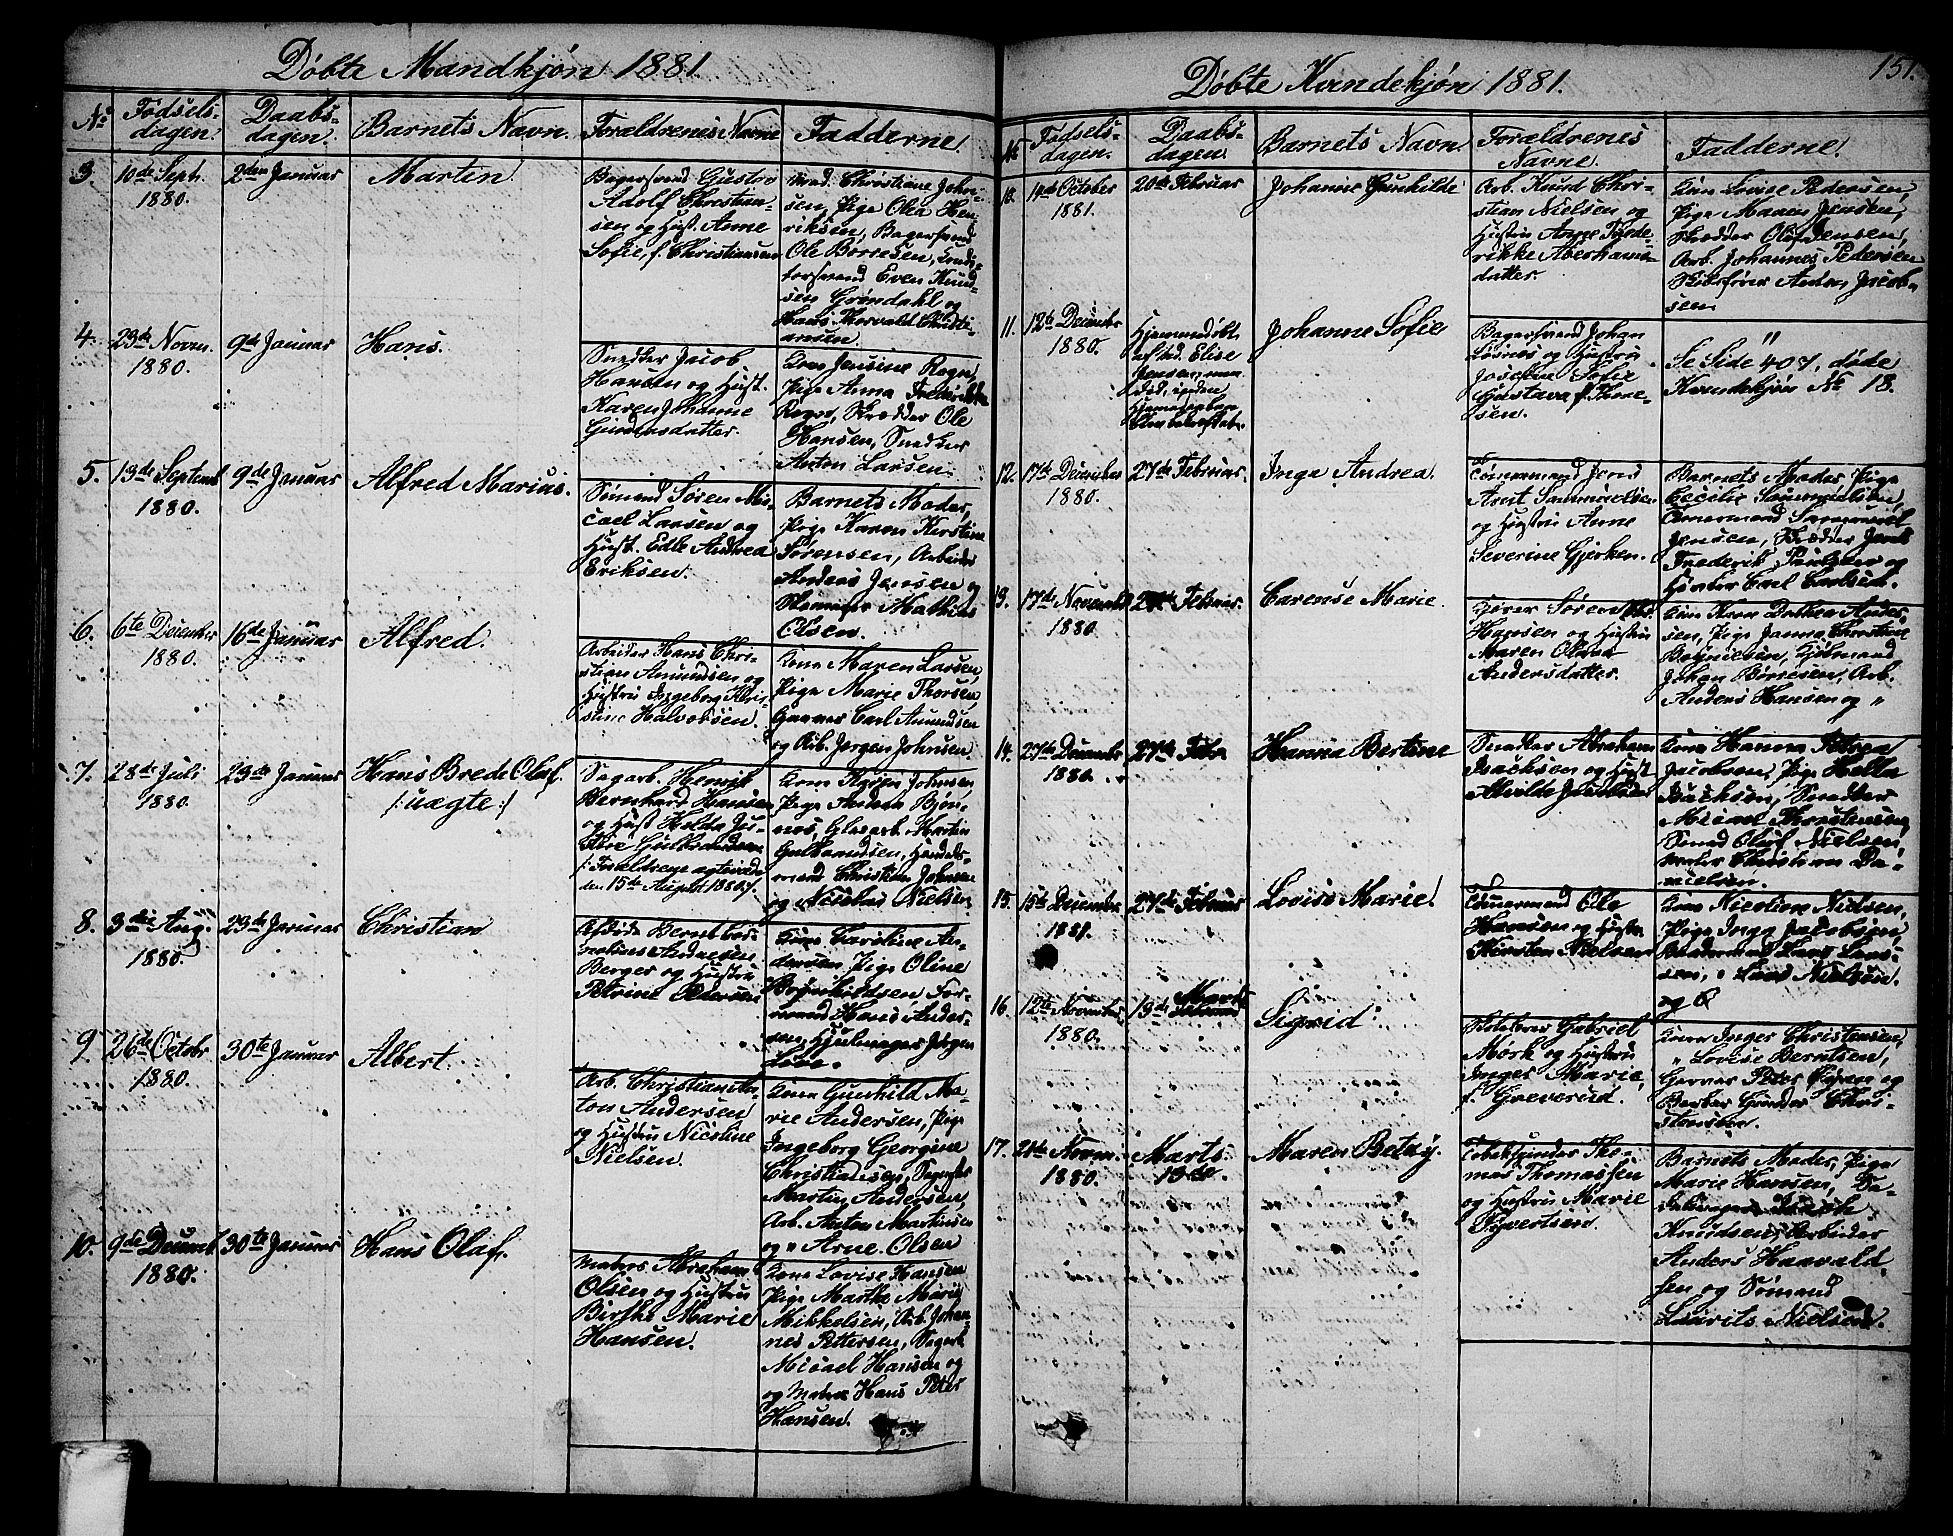 Døbte Mandkjøn 1881.
No
Fødsels-
dagen.
Daabs-
dagen.
Barnets Navn.
Forældrenes Navne
Fadderne.
3
10de Septr.
1880.
2den Januar
Martin
Bagersvend Gustav
Adolf Christian-
sen og Hust. Anne
Sofie f. Christiansen
Mad. Christiane Johan-
sen, Pige Olea Hen-
riksen, Bagersvend
Ole Börresen,
Even Knud-
sen Grøndahl og
Hans Thorvald Christi-
ansen.
4.
23de Novm.
1880.
9de Januar
Hans.
Snedker Jacob
Hansen og Hust.
Karen Johanne
Gundersdatter.
Kone Jensine
Pige Anna Fredrikke
Skrædder Ole
Hansen, Snedker
Anton Larsen.
5.
13de Septemb
1880.
9de Januar
Alfred Marius.
Sømand Søren Mi-
cael Larsen og
Hust. Edle Andrea
Eriksen.
Barnets Moder,
Pige Karen Kirstine
Sørensen, Arbeider
Anders Jensen og
Mathias
Olsen.
6.
6te December
1880.
16de Januar
Alfred.
Arbeider Hans Chri-
stian Amundsen og
Hustru Ingeborg Kri-
stine Halvorsen.
Kone Maren Larsen,
Pige Marie Thorsen,
Garver Carl Amundsen
og Arb. Jørgen Johnsen.
7.
28de Juli
1880.
23de Januar
Hans Brede Olaf.
/: uægte :/
Sagarb. Henrik
Bernhard Hansen
og Hust Helda Ju-
Gulbrandsen
/: Forældrene ægteviede
den 15de August 1880 :/
Kone Karen Johnsen
Pige Andrea Bjør-
Glasarb. Martin
Gulbrandsen, Handels-
mand Christian Johnsen
og Nicolai Nielsen.
8.
3die Aug.
1880.
23de Januar
Christian
Afdøde Bernt
Andresen
Berger og Hustru
Petrine Pedersen
Kone Caroline An-
dersen, Pige Oline
For-
mand Hans Ander-
sen, Hjulmager Jørgen
9.
26de Octobr
1880.
30te Januar
Albert.
Arb. Christian An-
ton Andersen
og Hustru Nicoline
Nielsen.
Kone Gunhild Ma-
rie Andersen, Pige
Ingeborg Georgine
Christiansen,
Martin Andersen,
Arb. Anton Martinsen
og " Arne Olsen
10.
9de Decemb
1880.
30te Januar
Hans Olaf.
Matros Abraham
Olsen og Hustru
Birthe Marie
Hansen.
Kone Lovise Hansen
Pige Marthe Marie
Mikkelsen, Arb. Johan-
nes Pettersen, Sagarb.
Micael Hansen og
og Matros Hans Peter
Hansen.
Døbte Kvindekjøn 1881.
151.
No
Fødsels-
dagen.
Daabs-
dagen
Barnets Navn.
Forældrenes
Navne.
Fadderne.
10.
14de October
1881.
20de Februar
Johanne Gunhilde
Arb. Knud Chri-
stian Nielsen og
Hustru Anne Frede-
rikke Abrahams-
datter.
Kone Lovise Pedersen,
Pige Maren Jensen,
Skrædder Olaf Jensen,
Arb. Johannes Pedersen
Anton Jacob-
sen.
11.
12te December
1880.
Hjemmedøbt
af Mad. Elise
Jensen,
død, inden
Johanne Sofie
Bagersvend Johan
og Hustru
Josefine Sofie
Gustava f. Thine-
sen.
"
Se Side 407, døde
Kvindekjøn No 18.
12.
17de December
1880.
27de Februar
Inga Andrea.
Tømmermand Jens
Arnt Sammuelsen
og Hustru Anne
Severine Gjerken.
Barnets Moder, Pige
Cecilie Sammuelsen,
Tømmermand Sammuel
Jensen, Skrædder Jacob
Frederik Paulsen og
Carl Carlsen.
13.
17de Novemb
1880
27de Februar.
Carense Marie.
Søren
Hansen og Hustru
Maren Olava
Andersdatter.
Kone Karen Dorthea Ander-
sen, Pige Janna Christine
Johan Börresen, Arb.
Anders Hansen og "
14.
27de Decemb
1880.
27de Febr
Hanna Bertine
Snedker Abraham
Isachsen og Hust
Alvilde Jacobsen
Kone Hanna Petrea
Jacobsen, Pige Helle
Isachsen, Snedker
Micael Thorstensen
Smed Olaf Nielsen,
Christian Da-
nielsen.
15.
15de December
1881.
27de Februar
Lovise Marie.
Tømmermand Ole
Hansen og Hustru
Kirsten Nielsen
Kone Nicoline Nielsen,
Pige Inga Jacobsen,
Lars Lar-
sen, " Lars Nielsen.
og O
16.
12te November
1880.
13de Marts
Sigrid
Gabriel
Mørk og Hustru
Inger Marie,
f. Greverud.
Kone Inger Christensen,
" Lovise Berntsen,
Garver Peter og
Gunder Chri-
stensen.
17.
21de Novm.
1880.
Marts
13de.
Maren Betzy.
Tobakspinder Tho-
mas Thomassen
og Hustru Marie
Syvertsen.
Barnets Moder, Pige
Marie Hansen,
Knudsen, Arbeider
Anders Haavald-
sen og Sømand
Laurits Nielsen.